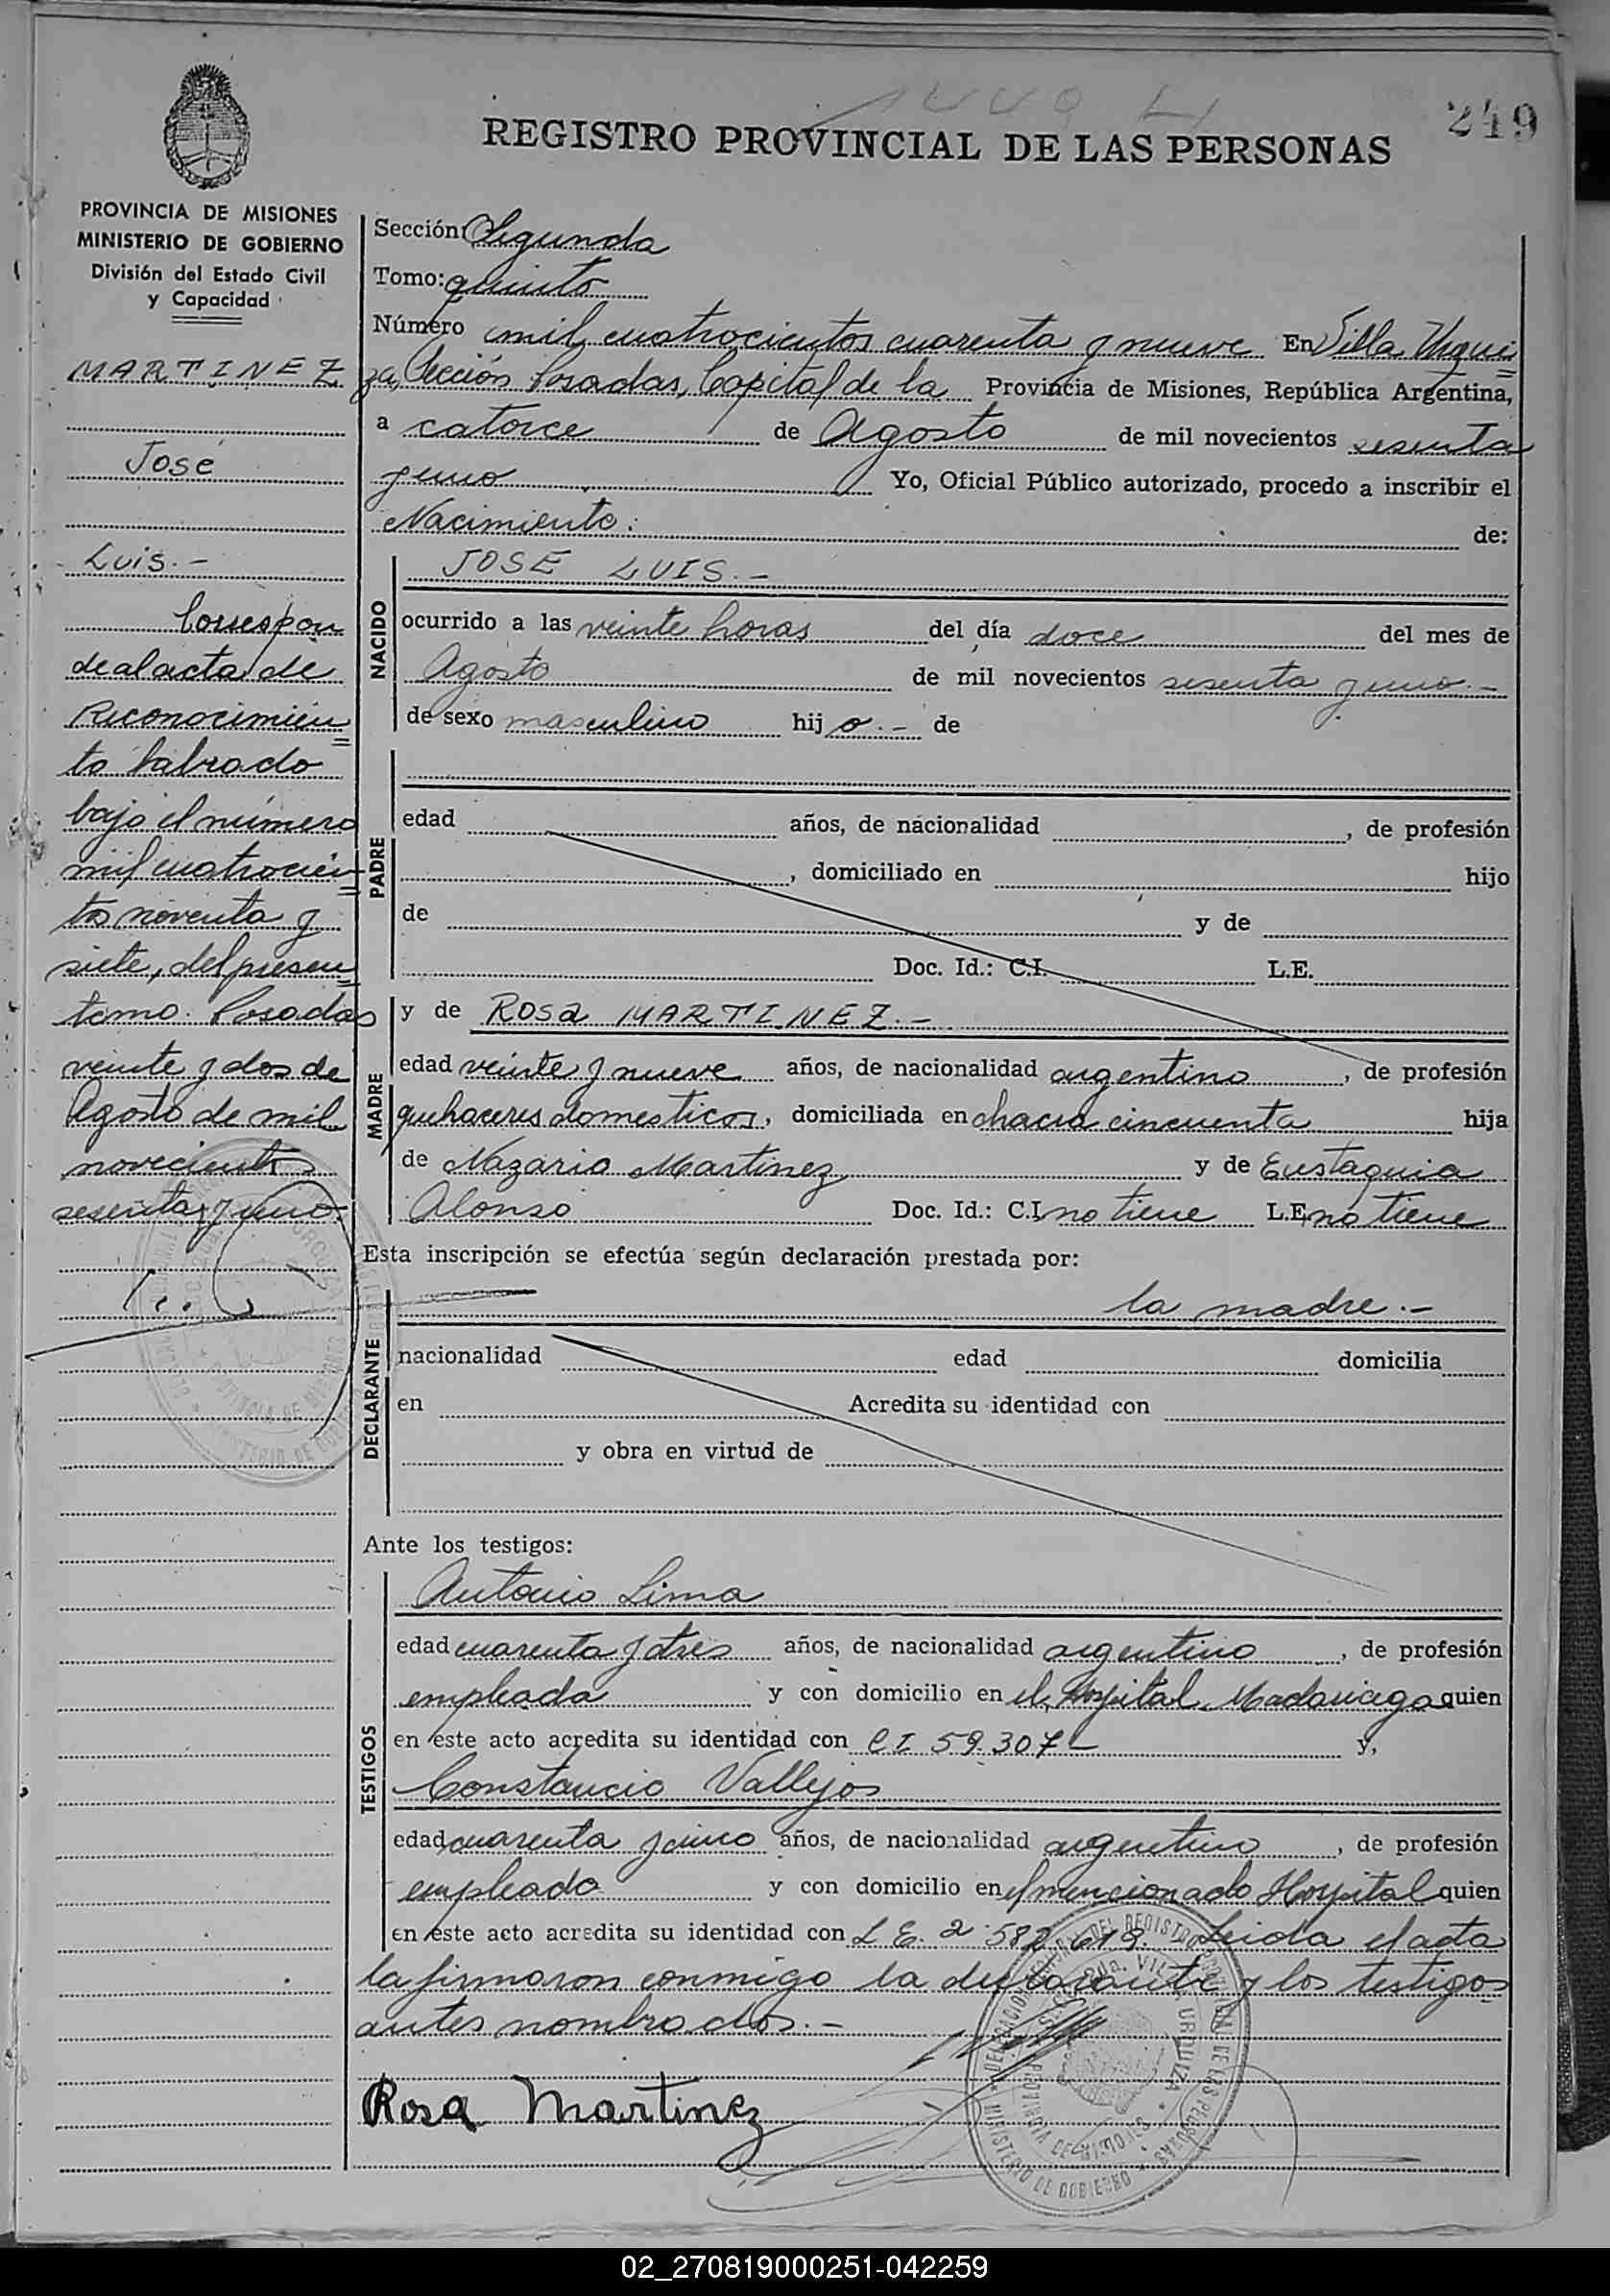 249
REGISTRO PROVINCIAL DE LAS PERSONAS
PROVINCIA DE MISIONES
MINISTERIO DE GOBIERNO
División del Estado Civil
y Capacidad
MARTINEZ
José
Luis.-
Correspon
de al acta de
Reconocimien
to labrado
bajo el número
mil cuatrocien
tos noventa y
siete, del presen
tomo. Posadas
veinte y dos de
Agosto de mil
novecientos
sesenta y uno.
Sección: Segunda
Tomo: quinto
Número mil cuatrocientos cuarenta y nueve En Villa Urqui
za, Sección Posadas, Capital de la Provincia de Misiones, República Argentina,
a catorce de Agosto de mil novecientos sesenta
y uno Yo, Oficial Público autorizado, procedo a inscribir el
Nacimiento. de:
NACIDO
JOSE LUIS.-
ocurrido a las veinte horas del día doce del mes de
Agosto de mil novecientos sesenta y uno.-
de sexo masculino hijo.- de
PADRE
edad años, de nacionalidad , de profesión
, domiciliado en hijo
de y de
Doc. Id.: C.I. L.E.
MADRE
y de ROSA MARTINEZ.-
edad veinte y nueve años, de nacionalidad argentina , de profesión
quehaceres domesticos, domiciliada en chacra cincuenta hija
de Nazario Martinez y de Eustaquia
Alonso Doc. Id.: C.I. no tiene L.E. no tiene
Esta inscripción se efectúa según declaración prestada por:
la madre.-
DECLARANTE
nacionalidad edad domicilia
en Acredita su identidad con
y obra en virtud de
Ante los testigos:
TESTIGOS
Antonio Lima
edad cuarenta y tres años, de nacionalidad argentino , de profesión
empleado y con domicilio en el Hospital Madariaga quien
en este acto acredita su identidad con CI 59.307 y,
Constancio Vallejos
edad cuarenta y cinco años, de nacionalidad argentino , de profesión
empleado y con domicilio en el mencionado Hospital quien
en este acto acredita su identidad con L E. 2 582 619. Leida el acta
la firmaron conmigo la declarante y los testigos
antes nombrados.-
Rosa Martinez
02_270819000251-042259